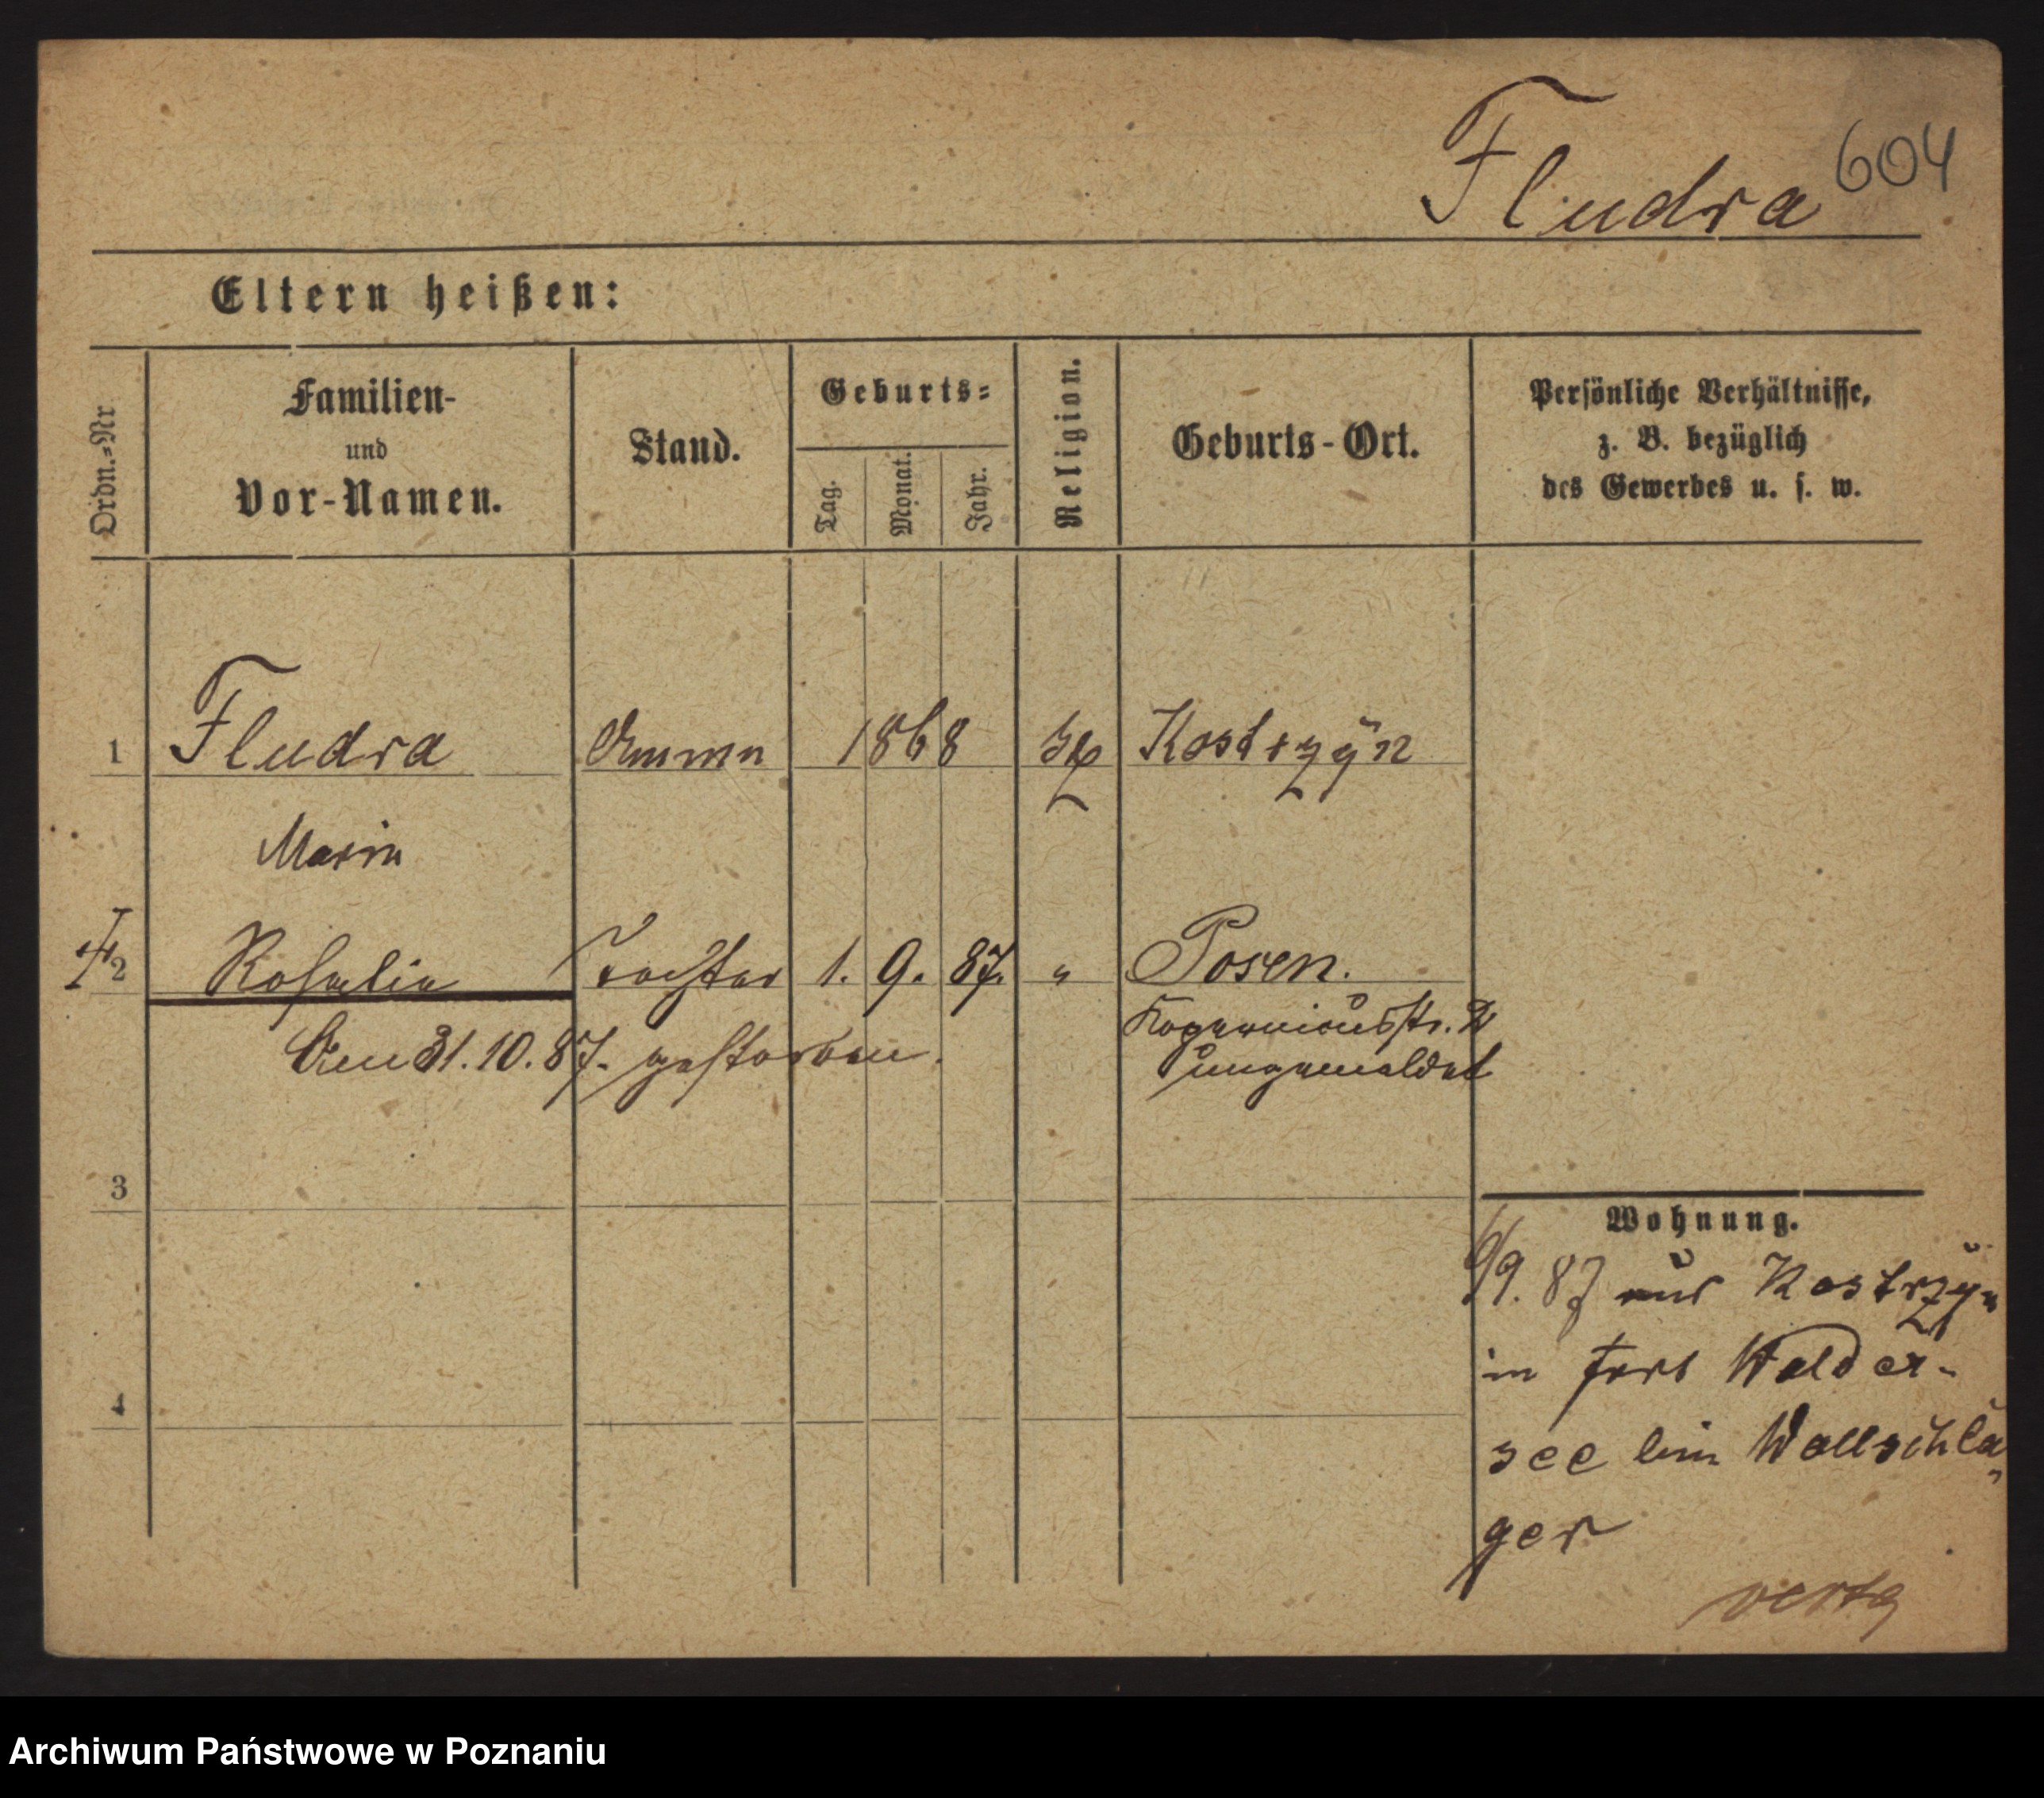 Fludra
604
Eltern heißen:
Ordn.-Nr
Familien-
und
Vor-Namen.
Stand.
Geburts-
Tag.
Monat.
Jahr.
Religion.
Geburts-Ort.
Persönliche Verhältnisse,
z. B. bezüglich
des Gewerbes u. s. w.
1 Fludra Amme 1868 Kostrzÿn
Marie
2 Rosalie Tochter 1. 9. 87. " Posen.
Den 31.10.87. gestorben.
ungemeldet
3
Wohnung.
6/9. 87 aus Kostrzyn
in Fort Walder-
see beim Wallschlä-
ger
4
Archiwum Państwowe w Poznaniu